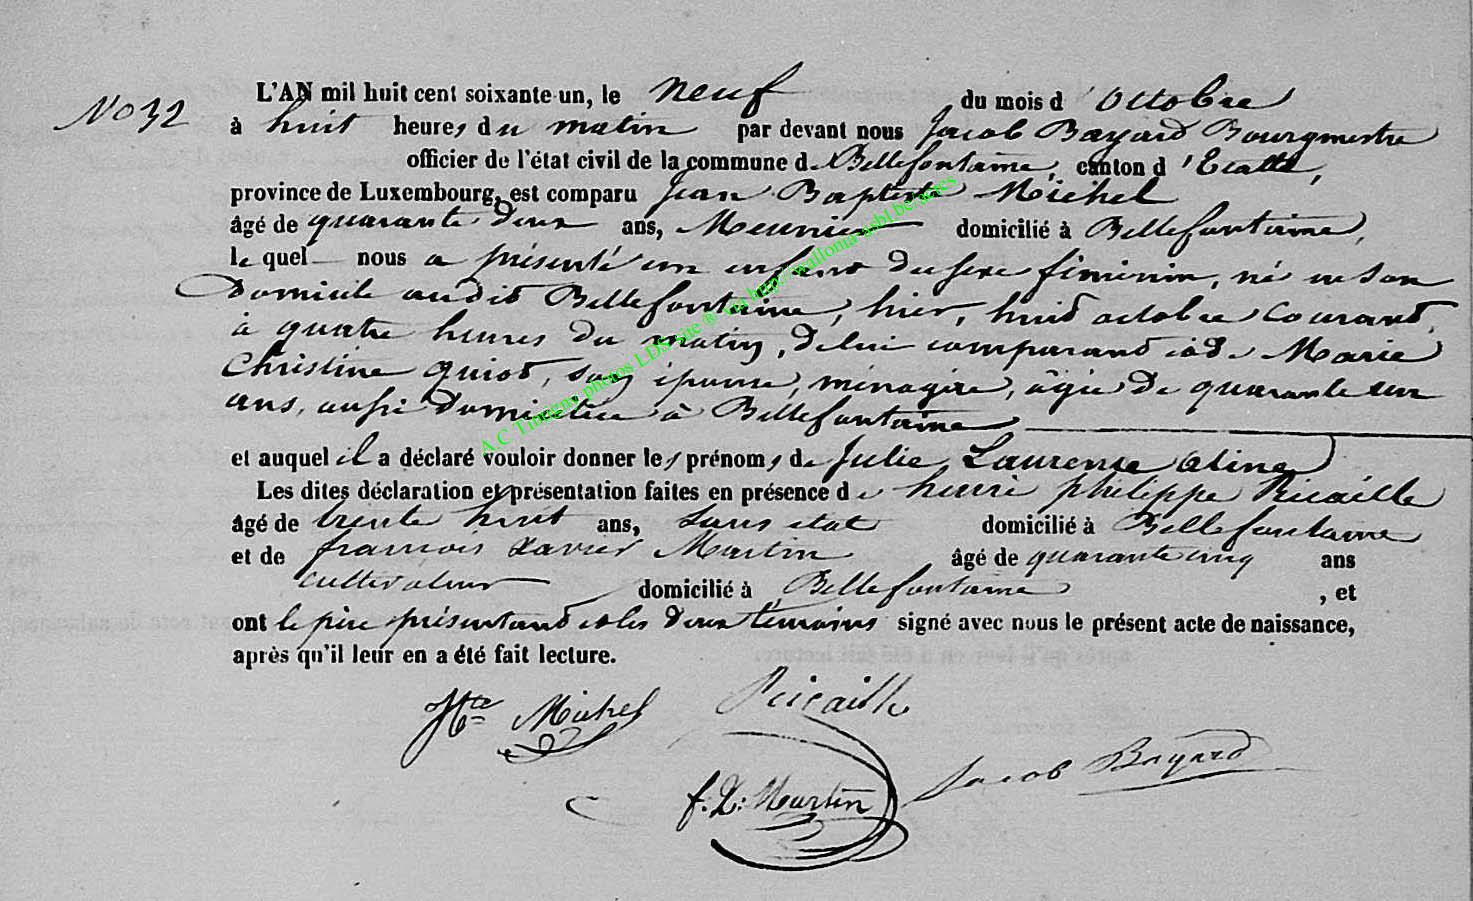 No 32
L'AN mil huit cent soixante-un, le neuf du mois d'Octobre
à huit heures du matin par devant nous Jacob Bayard Bourgmestre
officier de l'état civil de la commune de Bellefontaine, canton d'Etalle,
province de Luxembourg, est comparu Jean Baptiste Michel
âgé de quarante deux ans, Meunier domicilié à Bellefontaine,
lequel nous a présenté un enfant du sexe féminin, né en son
domicile audit Bellefontaine, hier, huit octobre courant,
à quatre heures du matin, de lui comparant et de Marie
Christine Quiot, son épouse, ménagère, âgée de quarante un
ans, aussi domiciliée à Bellefontaine
et auquel il a déclaré vouloir donner les prénoms de Julie Laurence Aline
Les dites déclaration et présentation faites en présence de henri philippe Ricaille
âgé de trente huit ans, sans état domicilié à Bellefontaine
et de françois Xavier Martin âgé de quarante cinq ans
cultivateur domicilié à Bellefontaine , et
ont le père présentant et les deux témoins signé avec nous le présent acte de naissance,
après qu'il leur en a été fait lecture.
Michel Ricaille
f. X: Martin Jacob Bayard
A C Tintigny photos LDS site ® via http://wallonia-asbl.be/actes